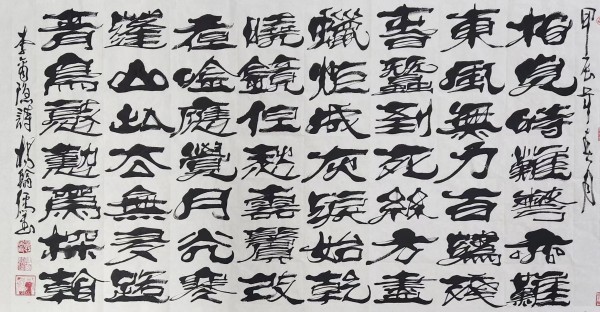 甲辰年五月
相見時難別亦難
東風無力百花殘
春蠶到死絲方盡
蠟炬成灰淚始乾
曉鏡但愁雲鬢改
夜吟應覺月光寒
蓬山此去無多路
青鳥慇懃為探看
李商隱詩 楊